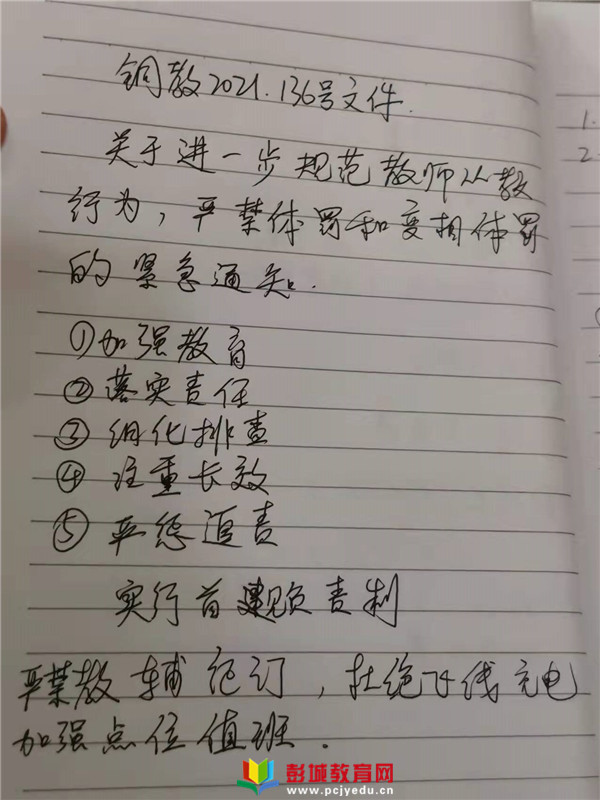 铜教2021.136号文件.
关于进一步规范教师从教
行为，严禁体罚和变相体罚
的紧急通知.
①加强教育
②落实责任
③细化排查
④注重长效
⑤严惩追责
实行首负责制
严禁教辅征订，杜绝飞线充电
加强点位值班.
1.
2
彭城教育网
www.pcjyedu.cn